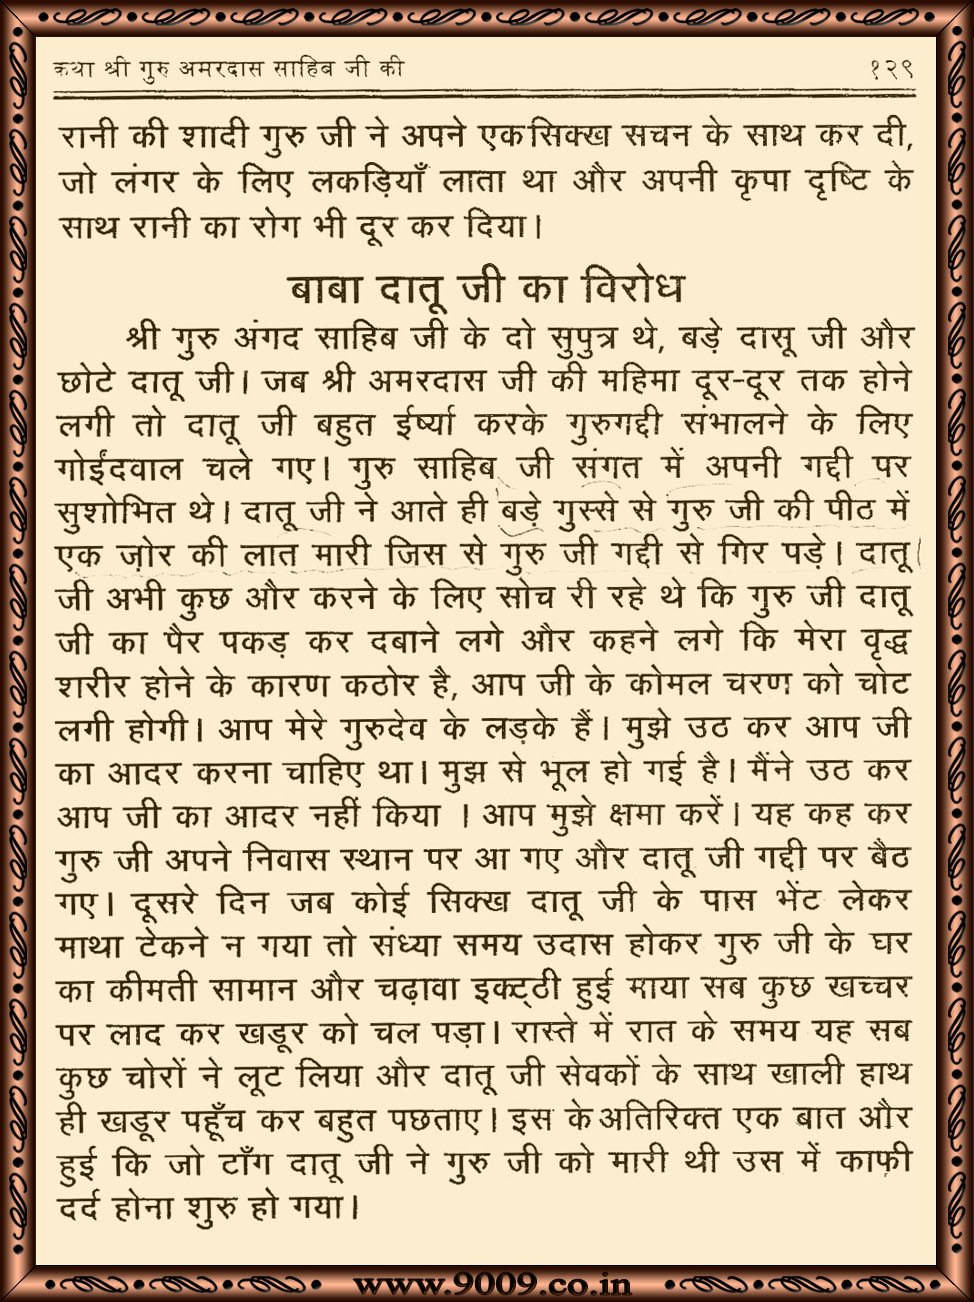 कथा श्री गुरु अमरदास साहिब जी की १२९
रानी की शादी गुरु जी ने अपने एक सिक्ख सचन के साथ कर दी,
जो लंगर के लिए लकड़ियाँ लाता था और अपनी कृपा दृष्टि के
साथ रानी का रोग भी दूर कर दिया।
बाबा दातू जी का विरोध
श्री गुरु अंगद साहिब जी के दो सुपुत्र थे, बड़े दासू जी और
छोटे दातू जी। जब श्री अमरदास जी की महिमा दूर-दूर तक होने
लगी तो दातू जी बहुत ईर्ष्या करके गुरुगद्दी संभालने के लिए
गोईंदवाल चले गए। गुरु साहिब जी संगत में अपनी गद्दी पर
सुशोभित थे। दातू जी ने आते ही बड़े गुस्से से गुरु जी की पीठ में
एक ज़ोर की लात मारी जिस से गुरु जी गद्दी से गिर पड़े। दातू
जी अभी कुछ और करने के लिए सोच री रहे थे कि गुरु जी दातू
जी का पैर पकड़ कर दबाने लगे और कहने लगे कि मेरा वृद्ध
शरीर होने के कारण कठोर है, आप जी के कोमल चरण को चोट
लगी होगी। आप मेरे गुरुदेव के लड़के हैं। मुझे उठ कर आप जी
का आदर करना चाहिए था। मुझ से भूल हो गई है। मैंने उठ कर
आप जी का आदर नहीं किया । आप मुझे क्षमा करें। यह कह कर
गुरु जी अपने निवास स्थान पर आ गए और दातू जी गद्दी पर बैठ
गए। दूसरे दिन जब कोई सिक्ख दातू जी के पास भेंट लेकर
माथा टेकने न गया तो संध्या समय उदास होकर गुरु जी के घर
का कीमती सामान और चढ़ावा इक्ट्ठी हुई माया सब कुछ खच्चर
पर लाद कर खडूर को चल पड़ा। रास्ते में रात के समय यह सब
कुछ चोरों ने लूट लिया और दातू जी सेवकों के साथ खाली हाथ
ही खडूर पहूँच कर बहुत पछताए। इस के अतिरिक्त एक बात और
हुई कि जो टाँग दातू जी ने गुरु जी को मारी थी उस में काफ़ी
दर्द होना शुरु हो गया।
www.9009.co.in